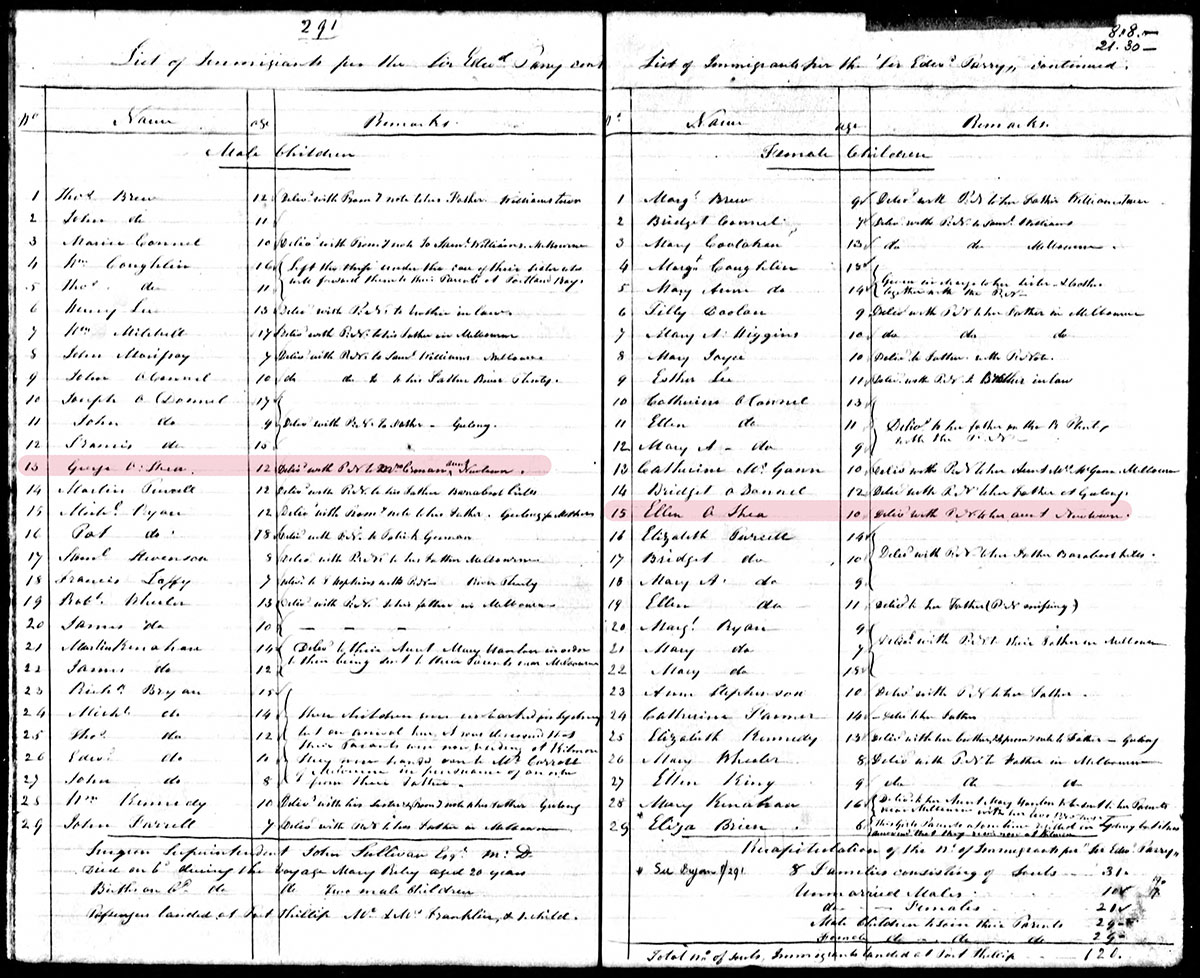 291
List of Immigrants per the Sir Edwd Parry cont
No Name age Remarks.
Male Children
1 Thos Brew 12 Delivd with Promy note to his Father Williamstown
2 John do 11
3 Connel 10 Delivd with Promy note to Saml Williams. Melbourne
4 Wm Coughlin 16 Left the Ship under the care of their Sister who
5 Thos do 11 will forward them to their Parents at Portland Bay
6 Henry Lee 13 Delivd with P.N. to brother in law
7 Wm Mitchell 17 Delivd with P.N. to his Father in Melbourne
8 John 7 Delivd with P.N. to Saml Williams. Melbourne
9 John O Connel 10 do do to his Father River Plenty.
10 Joseph O Donnel 17
11 John do 9 Delivd with P.N. to Father - Geelong.
12 Francis do 15
13 George O Shea. 12 Delivd with P.N. to aunt Newtown.
14 Martin Purcell 12 Delivd with P.N. to his Father
15 Michl Ryan 12 Delivd with Promy note to his Father. Geelong
16 Pat do 18 Delivd with P.N. to Patrick Gorman
17 Saml Stevenson 8 Delivd with P.N. to his Father Melbourne
18 Francis Laffy 7 Delivd to Hopkins with P.N. River Plenty
19 Robt Wheeler 13 Delivd with P.N. to his father in Melbourne
20 James do 10 - - - -
21 Martin Kenahan 14 Delivd to their Aunt Mary Hanlon in order
22 James do 12 to their being sent to their Parents near Melbourne
23 Richd Bryan 15
24 Michl do 14 These children were embarked for Sydney
25 Thos do 12 but on arrival here, it was discovered that
26 Edwd do 10 their Parents were now residing at
They were handed over to Mr
27 John do 8 Melbourne in pursuance of an order
from their Father.
28 Wm Kennedy 10 Delivd with his Sister & Promy note to her father Geelong
29 John Farrell 7 Delivd with P.N. to his Father in Melbourne
Surgeon Superintendent John Sullivan Esqr M.D.
Died on bd during the Voyage Mary Riley aged 20 years
Births on Bd do do Two male Children
Passengers landed at Port Phillip Mr & Mrs Franklin, & 1 child.
818.-
21.30-
List of Immigrants per the "Sir Edwd Parry" continued.
No Name age Remarks.
Female Children
1 Margt Brew 9 Delivd with P.N. to her Father Williamstown
2 Bridget Connel 7 Delivd with P.N. to Saml Williams
3 Mary Coolahan 13 do do Melbourne
4 Margt Coughlin 18 Given in charge to her Sister & brother
5 Mary Anne do 14 together with the P.N.
6 Tilly Coolan 9 Delivd with P.N. to her Father in Melbourne
7 Mary A. Higgins 10 do do do
8 Mary Joyce 10 Delivd to Father with P. Note.
9 Esther Lee 11 Delivd with P.N. to Brother in law
10 Catherine O Connel 13
11 Ellen do 11 Delivd to her father on the R Plenty
12 Mary A - do 9 with the P.N.
13 Catherine Mc Gann 10 Delivd with P.N. to her Aunt Mrs Mc Gann Melbourne
14 Bridget O Donnel 12 Delivd with P.N. to her Father at Geelong.
15 Ellen O Shea 10 Delivd with P.N. to her aunt Newtown.
16 Elizabeth Purcell 14
17 Bridget do 10 Delivd with P.N. to her Father
18 Mary A. do 9
19 Ellen do 11 Delivd to her Father (P.N. missing)
20 Margt Ryan 9
21 Mary do 7 Delivd with P.N. to their Father in Melbourne
22 Mary do 15
23 Anne Stephenson 10 Delivd with P.N. to her Father.
24 Catherine Farmer 14 - Delivd to her Father
25 Elizabeth Kennedy 13 Delivd with her brother, & promy note to Father - Geelong
26 Mary Wheeler 8 Delivd with P.N. to Father in Melbourne
27 Ellen King 9 do do do
28 Mary Kenahan 16 Delivd to her Aunt, Mary Hanlon to be sent to her Parents
near Melbourne with her two Brothers
29 Eliza Brien 6
Recapitulation of the No. of Immigrants per "Sir Edwd Parry"
* See Bryans P/291 8 Families consisting of Souls - 31
Unmarried Males -
do - Females -
Male Children to join their Parents 29
Female do do do 29
Total No. of Souls, Immigrants landed at Port Phillip 120.